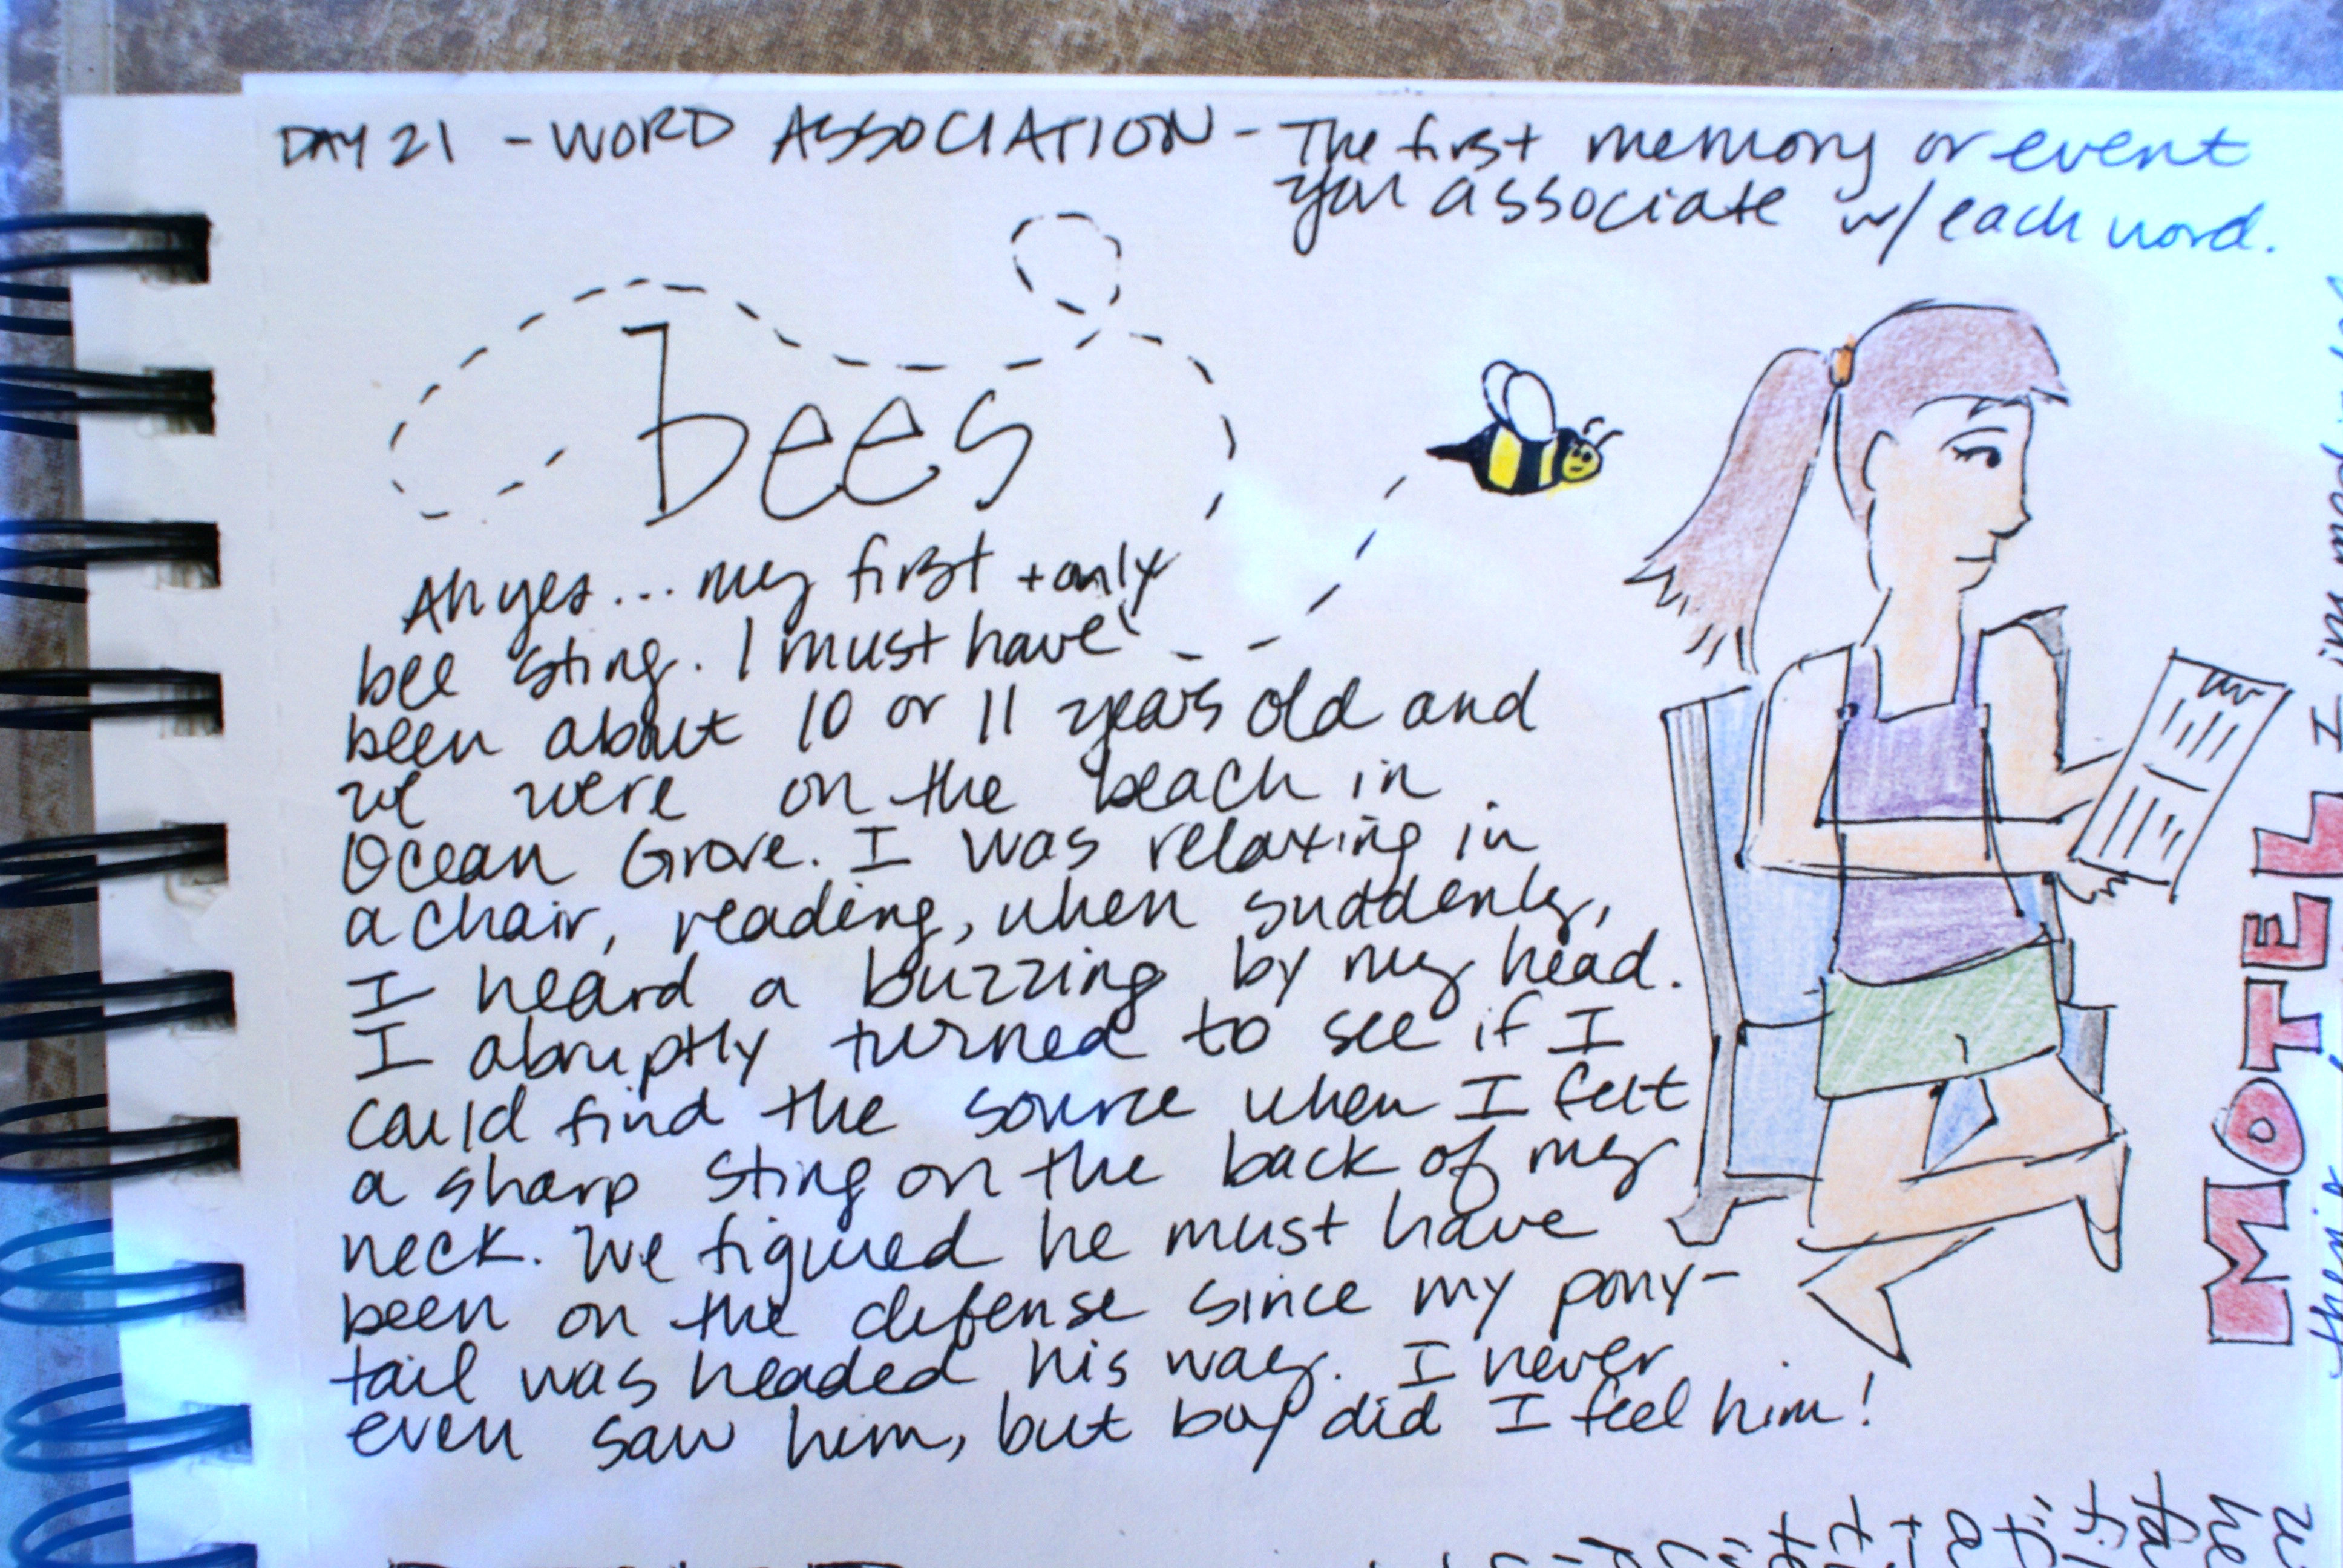 DAY 21 - WORD ASSOCIATION - The first memory or event
you associate w/ each word.
bees
Ah yes... my first + only
bee sting. I must have
been about 10 or 11 years old and
we were on the beach in
Ocean Grove. I was relaxing in
a chair, reading, when suddenly,
I heard a buzzing by my head.
I abruptly turned to see if I
could find the source when I felt
a sharp sting on the back of my
neck. We figured he must have
been on the defense since my pony-
tail was headed his way. I never
even saw him, but boy did I feel him!
MOTEL